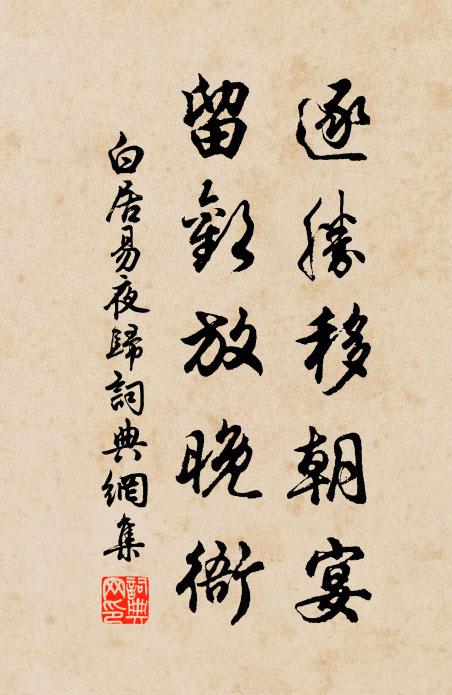 逐勝移朝宴
留歡放晚衙
白居易夜歸詞典網集
詞典網印